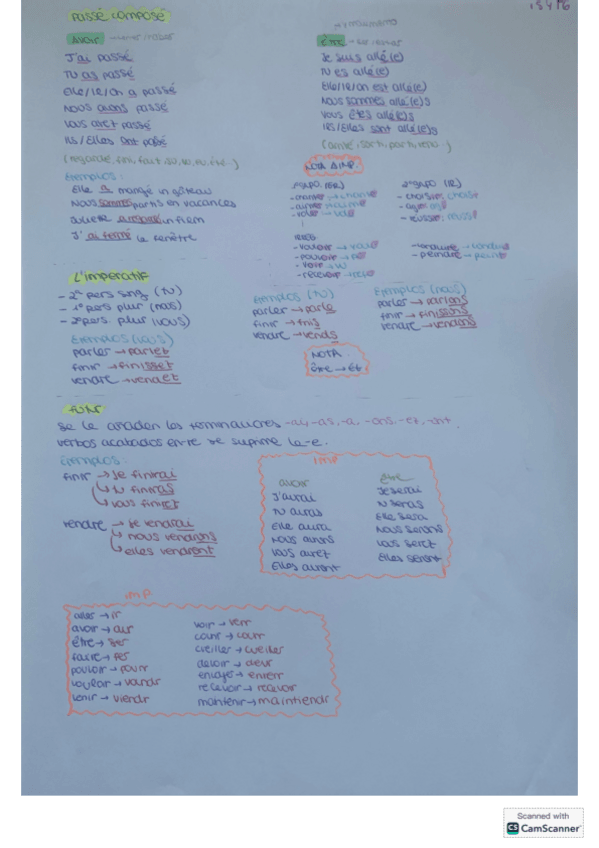 Passé composé
AVOIR
J'ai passé
Tu as passé
Elle/il/on a passé
Nous avons passé
Vous avez passé
Ils/Elles ont passé
(regardé, fini, fait, su, lu, eu, été...)
Exemplos:
Elle a mangé un gâteau
Nous sommes partis en vacances
J'ai fermé la fenêtre
ÊTRE
Je suis allé(e)
Tu es allé(e)
Elle/il/on est allé(e)
Nous sommes allé(e)s
Vous êtes allé(e)s
Ils/Elles sont allé(e)s
NOTA IMP.
1º GRUPO (ER)
2º GRUPO (IR)
- choisir → choisi
- agir → agi
- réussir → réussi
- vouloir → voulu
- pouvoir → pu
- voir → vu
- recevoir → reçu
- conduire → conduit
- peindre → peint
L'imperatif
- 2ª pers sing (tu)
- 1ª pers plur (nous)
- 2ª pers plur (vous)
Exemplos (vous)
parler → parlez
finir → finissez
vendre → vendez
Exemplos (tu)
parler → parle
finir → finis
vendre → vends
NOTA
Exemplos (nous)
parler → parlons
finir → finissons
vendre → vendons
Futur
se le añaden las terminaciones -ai, -as, -a, -ons, -ez, -ont.
verbos acabados en re se suprime la -e.
Ejemplos:
finir → je finirai
↳ tu finiras
↳ vous finirez
vendre → je vendrai
↳ nous vendrons
↳ elles vendront
IMP
avoir
J'aurai
Tu auras
Elle aura
Nous aurons
Vous aurez
Elles auront
être
Je serai
Tu seras
Elle sera
Nous serons
Vous serez
Elles seront
IMP
aller → ir
avoir → aur
être → ser
faire → fer
pouvoir → pourr
vouloir → voudr
venir → viendr
voir → verr
courir → courr
cueillir → cueiller
devoir → devr
envoyer → enverr
recevoir → recevr
maintenir → maintiendr
Scanned with
CS CamScanner